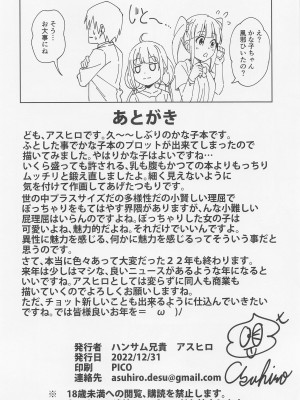 え?
かな子ちゃん
風邪ひいたの?
じと〜
そう…
お大事にね
あとがき
ども、アスヒロです。久〜〜しぶりのかな子本です。
ふとした事でかな子本のプロットが出来てしまったので
描いてみました。やはりかな子はよいですね…
いくら盛っても許される、乳も腹もかつての本よりもっちり
ムッチリと鍛え直しましたよ。細く見えないように
気を付けて作画してあげたつもりです。
世の中プラスサイズだの多様性だの小賢しい理屈で
ぽっちゃりをもてはやす界隈がありますが、そんな小難しい
屁理屈はいらんのですよね。ぽっちゃりした女の子は
可愛いよね、魅力的だよね。それだけでいいんですよ。
異性に魅力を感じる、何かに魅力を感じるってそういう事だと
思うのです。
さて、本当に色々あって大変だった22年も終わります。
来年は少しはマシな、良いニュースがあるような年になると
いいですね。アスヒロとしては変らずに同人も商業も
描いていくのでよろしくお願いしますね。
ただ、チョット新しいことも出来るように仕込んでいきたい
ですね。では皆様良いお年を= ω )/
発行者 ハンサム兄貴 アスヒロ
発行日 2022/12/31
印刷 PICO
連絡先 asuhiro.desu@gmail.com
Asuhiro
※ 18歳未満への閲覧、購読を禁止します。